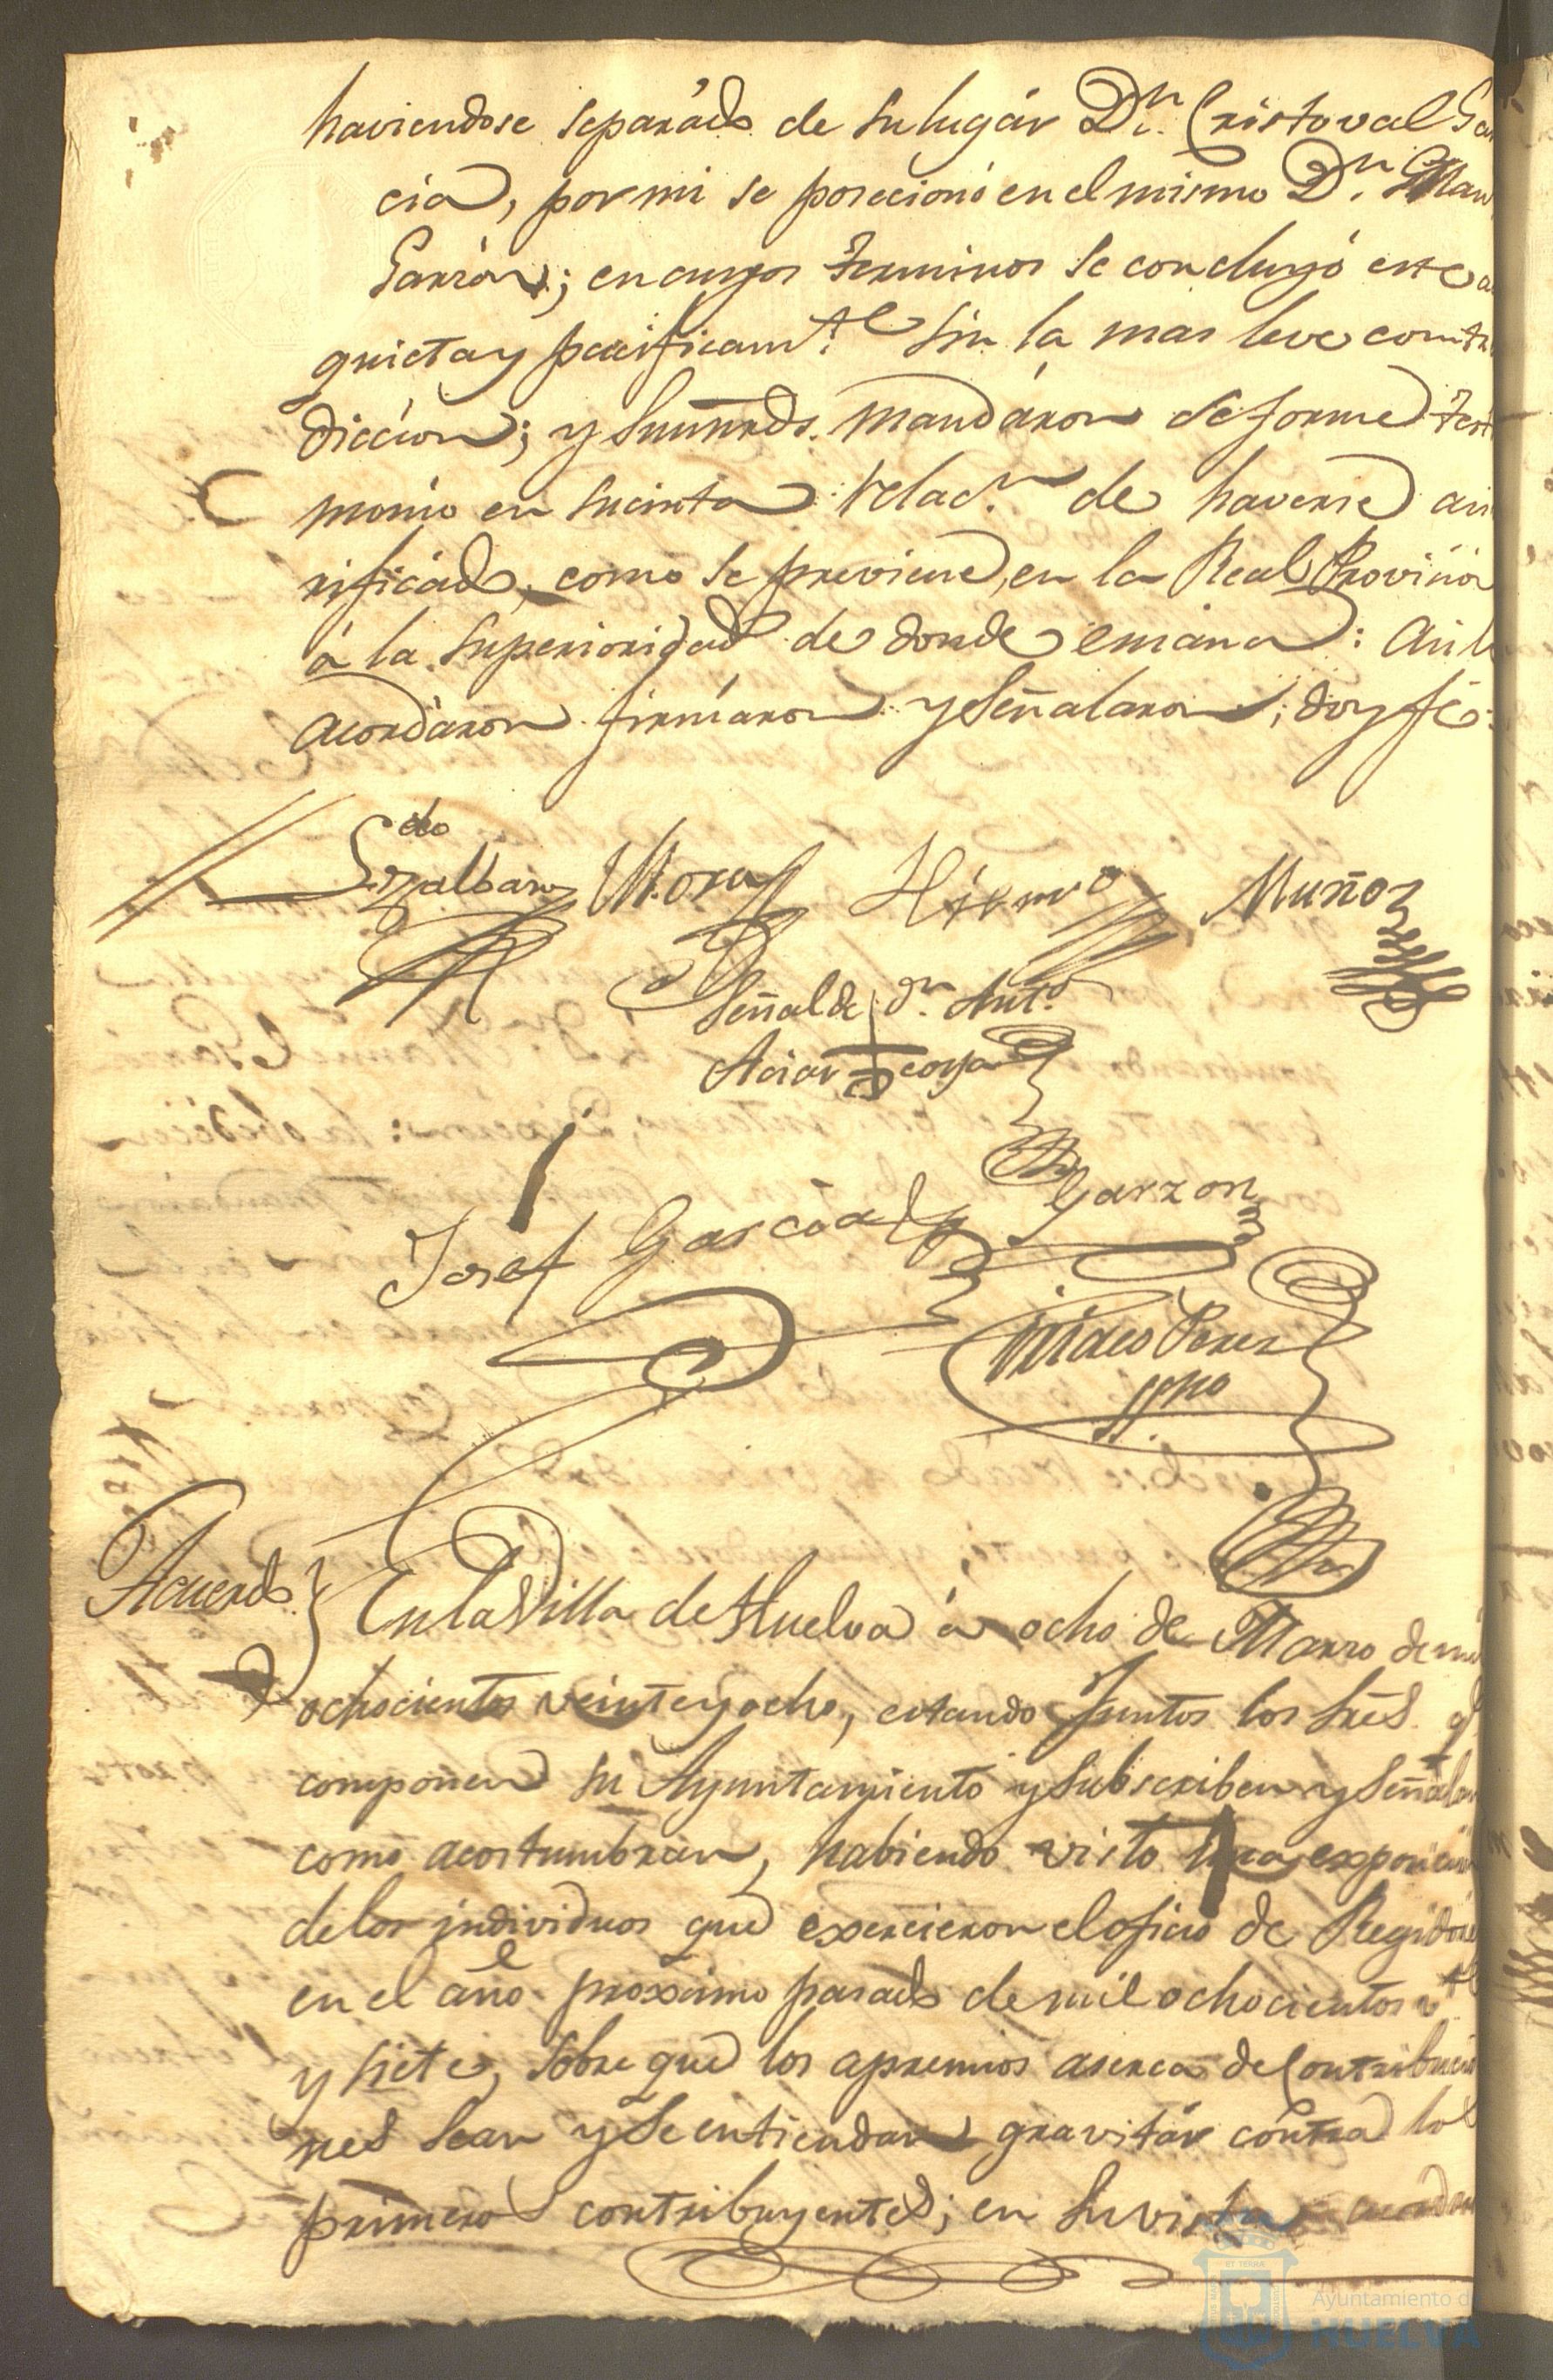 haviendose separádo de su lugár Dn. Cristoval Gar
cia, por mi se posecionó en el mismo Dn. Man
Garzón; en cuyos terminos se concluyó este a
quieta y pacificamte. sin la mas leve contra
diccíon; y Sus mrds. mandáron se forme testi
monio en sucinta relacn. de haverse asi
rificado, como se previene, en la Real Provision
á la Superioridad de donde emana: Asi lo
acordáron firmáron y Señalaron; doy fé:
Mora Hierro Muñoz
Señal de dn. Anto.
Garzon
Josef Garcia
Perez
ssno
Acuerdo
En la Villa de Huelva á ocho de Marzo de mil
ochocientos veinte y ocho, estando juntos los Sres. q
componen su Ayuntamiento y Subscriben y Señalan
como acostumbran, habiendo visto una exposicion
de los individuos que exercieron el oficio de Regidores
en el año proximo pasado de mil ochocientos vte
y siete, sobre que los apremios aserca de Contribucio
nes sean y se entiendan gravitár contra los
primeros contribuyentes; en su vista acordaron
Ayuntamiento d
HUELVA